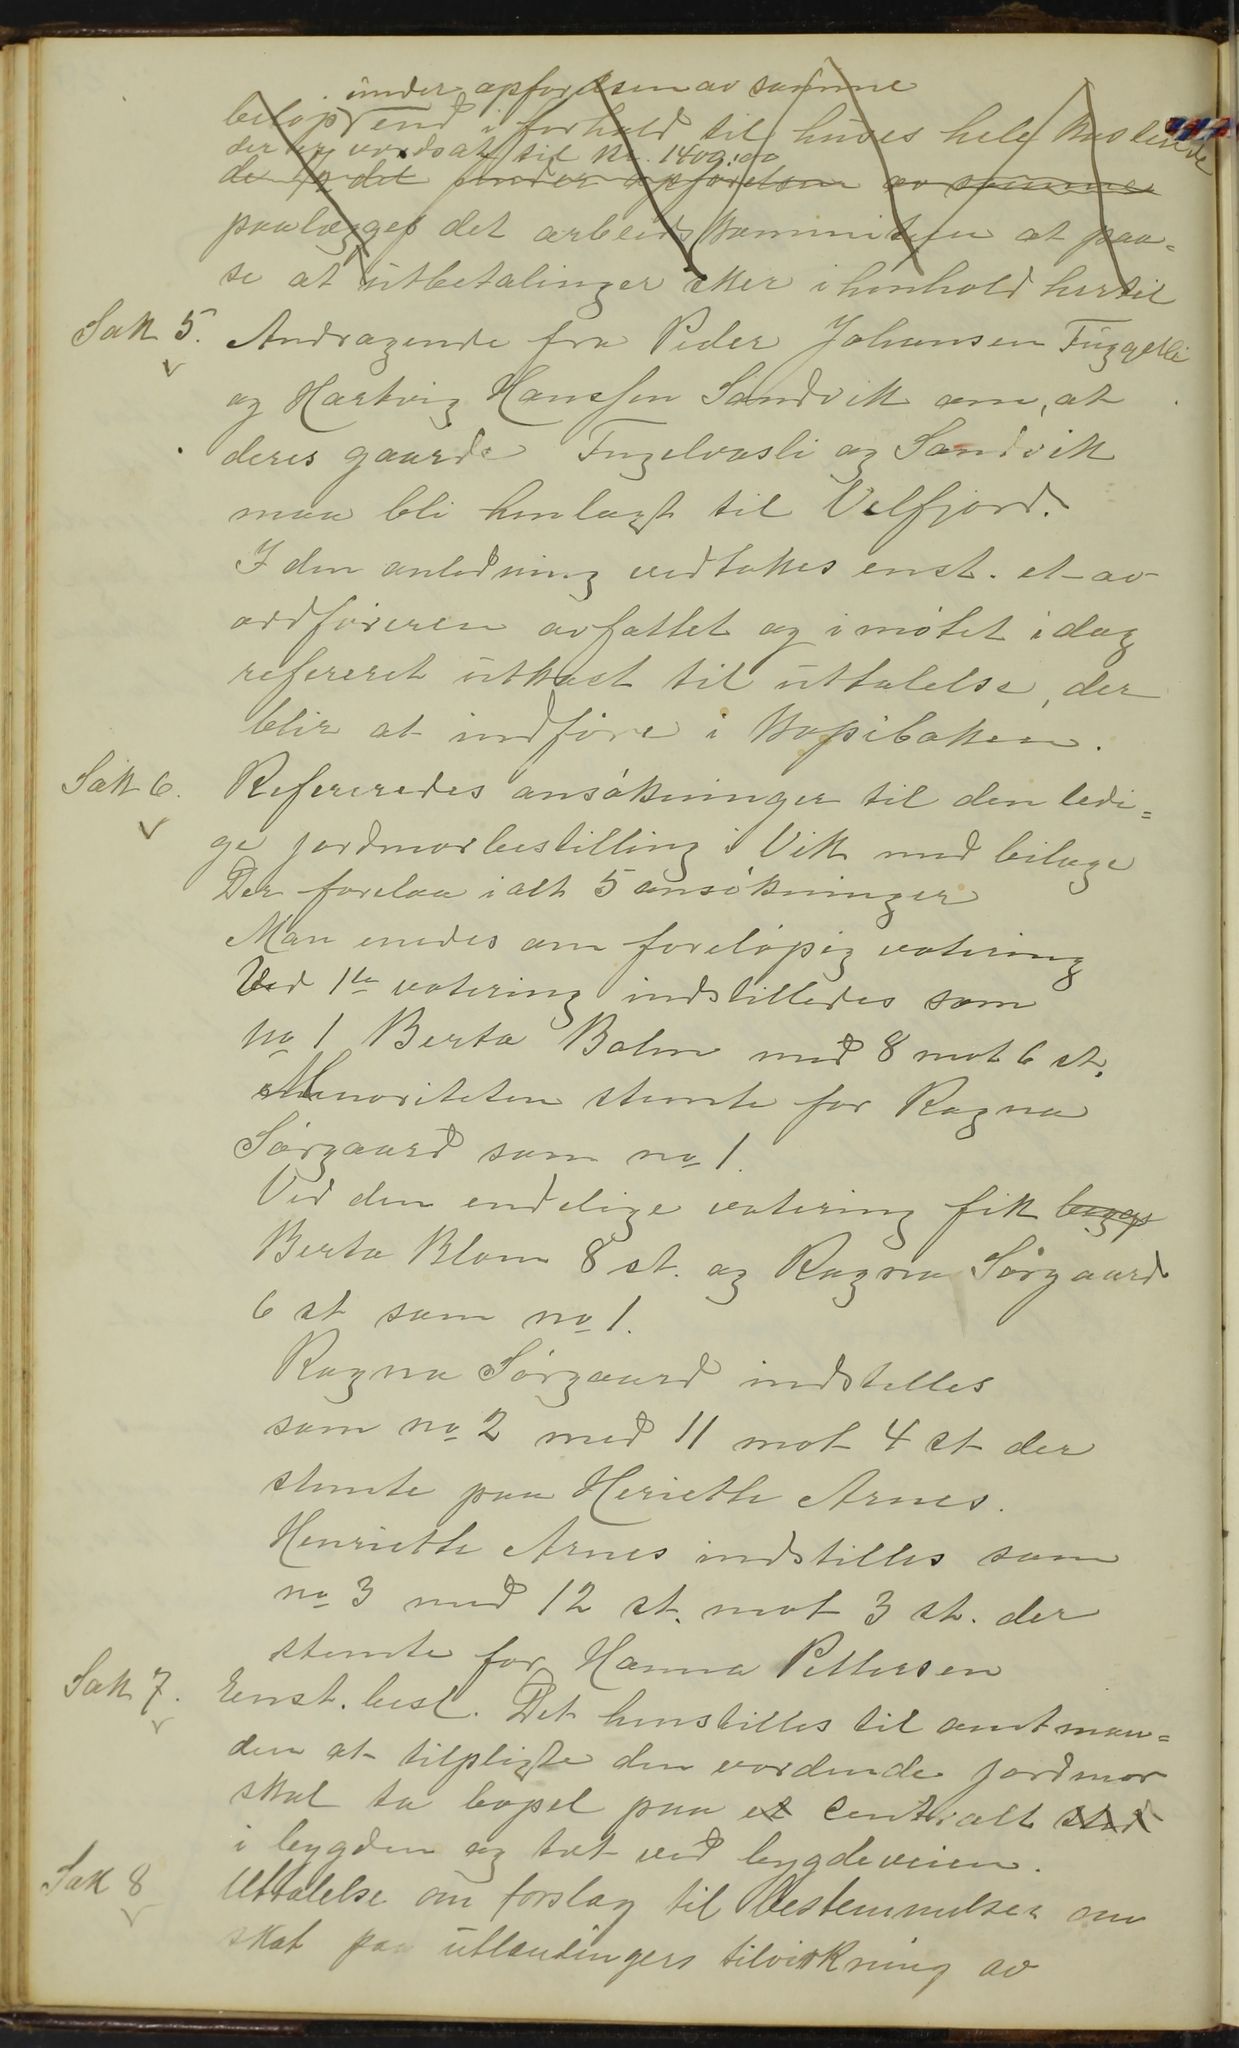 under opförelsen av samme
beløp end i forhold til huses hele kostende
der er vordsat til kr. 1400,00
de i det under opförelsen av samme
paalægges det arbeidskommiteen at paa-
se at utbetalinger sker i henhold hertil
Sak 5. Andragende fra Peder Johansen Fuggelli
og Hartvig Hanssen Sandvik om, at
deres gaarde Fugelvasli og Sandvik
maa bli henlagt til Velfjord.
I den anledning vedtakes enst. et av
ordføreren avfattet og i møtet idag
refereret utkast til uttalelse, der
blir at indføre i kopiboken.
Sak 6. Refereredes ansøkninger til den ledi=
ge jordmorbestilling i Vik med bilage
Der forelaa ialt 5 ansøkninger
Man enedes om foreløpig votering
Ved 1ste votering indstilledes som
no 1 Berta Bolm med 8 mot 6 st.
Minoriteten stemte for Ragna
Sørgaard som no 1.
Ved den endelige votering fik
Berta Blom 8 st. og Ragna Sørgaard
6 st som no 1.
Ragna Sørgaard indstelles
som no 2 med 11 mot 4 st der
stemte paa Heriette Arnes.
Henriette Arnes indstilles som
no 3 med 12 st. mot 3 st. der
stemte for Hanna Pettersen
Sak 7. Enst. besl. Det henstilles til amtman=
den at tilpligte den vordende jordmor
skal ta bopel paa et centralt sted
i bygden og tæt ved bygdeveien.
Sak 8 Uttalelse om forslag til bestemmelser om
skat paa utlendingers tilvirkning av